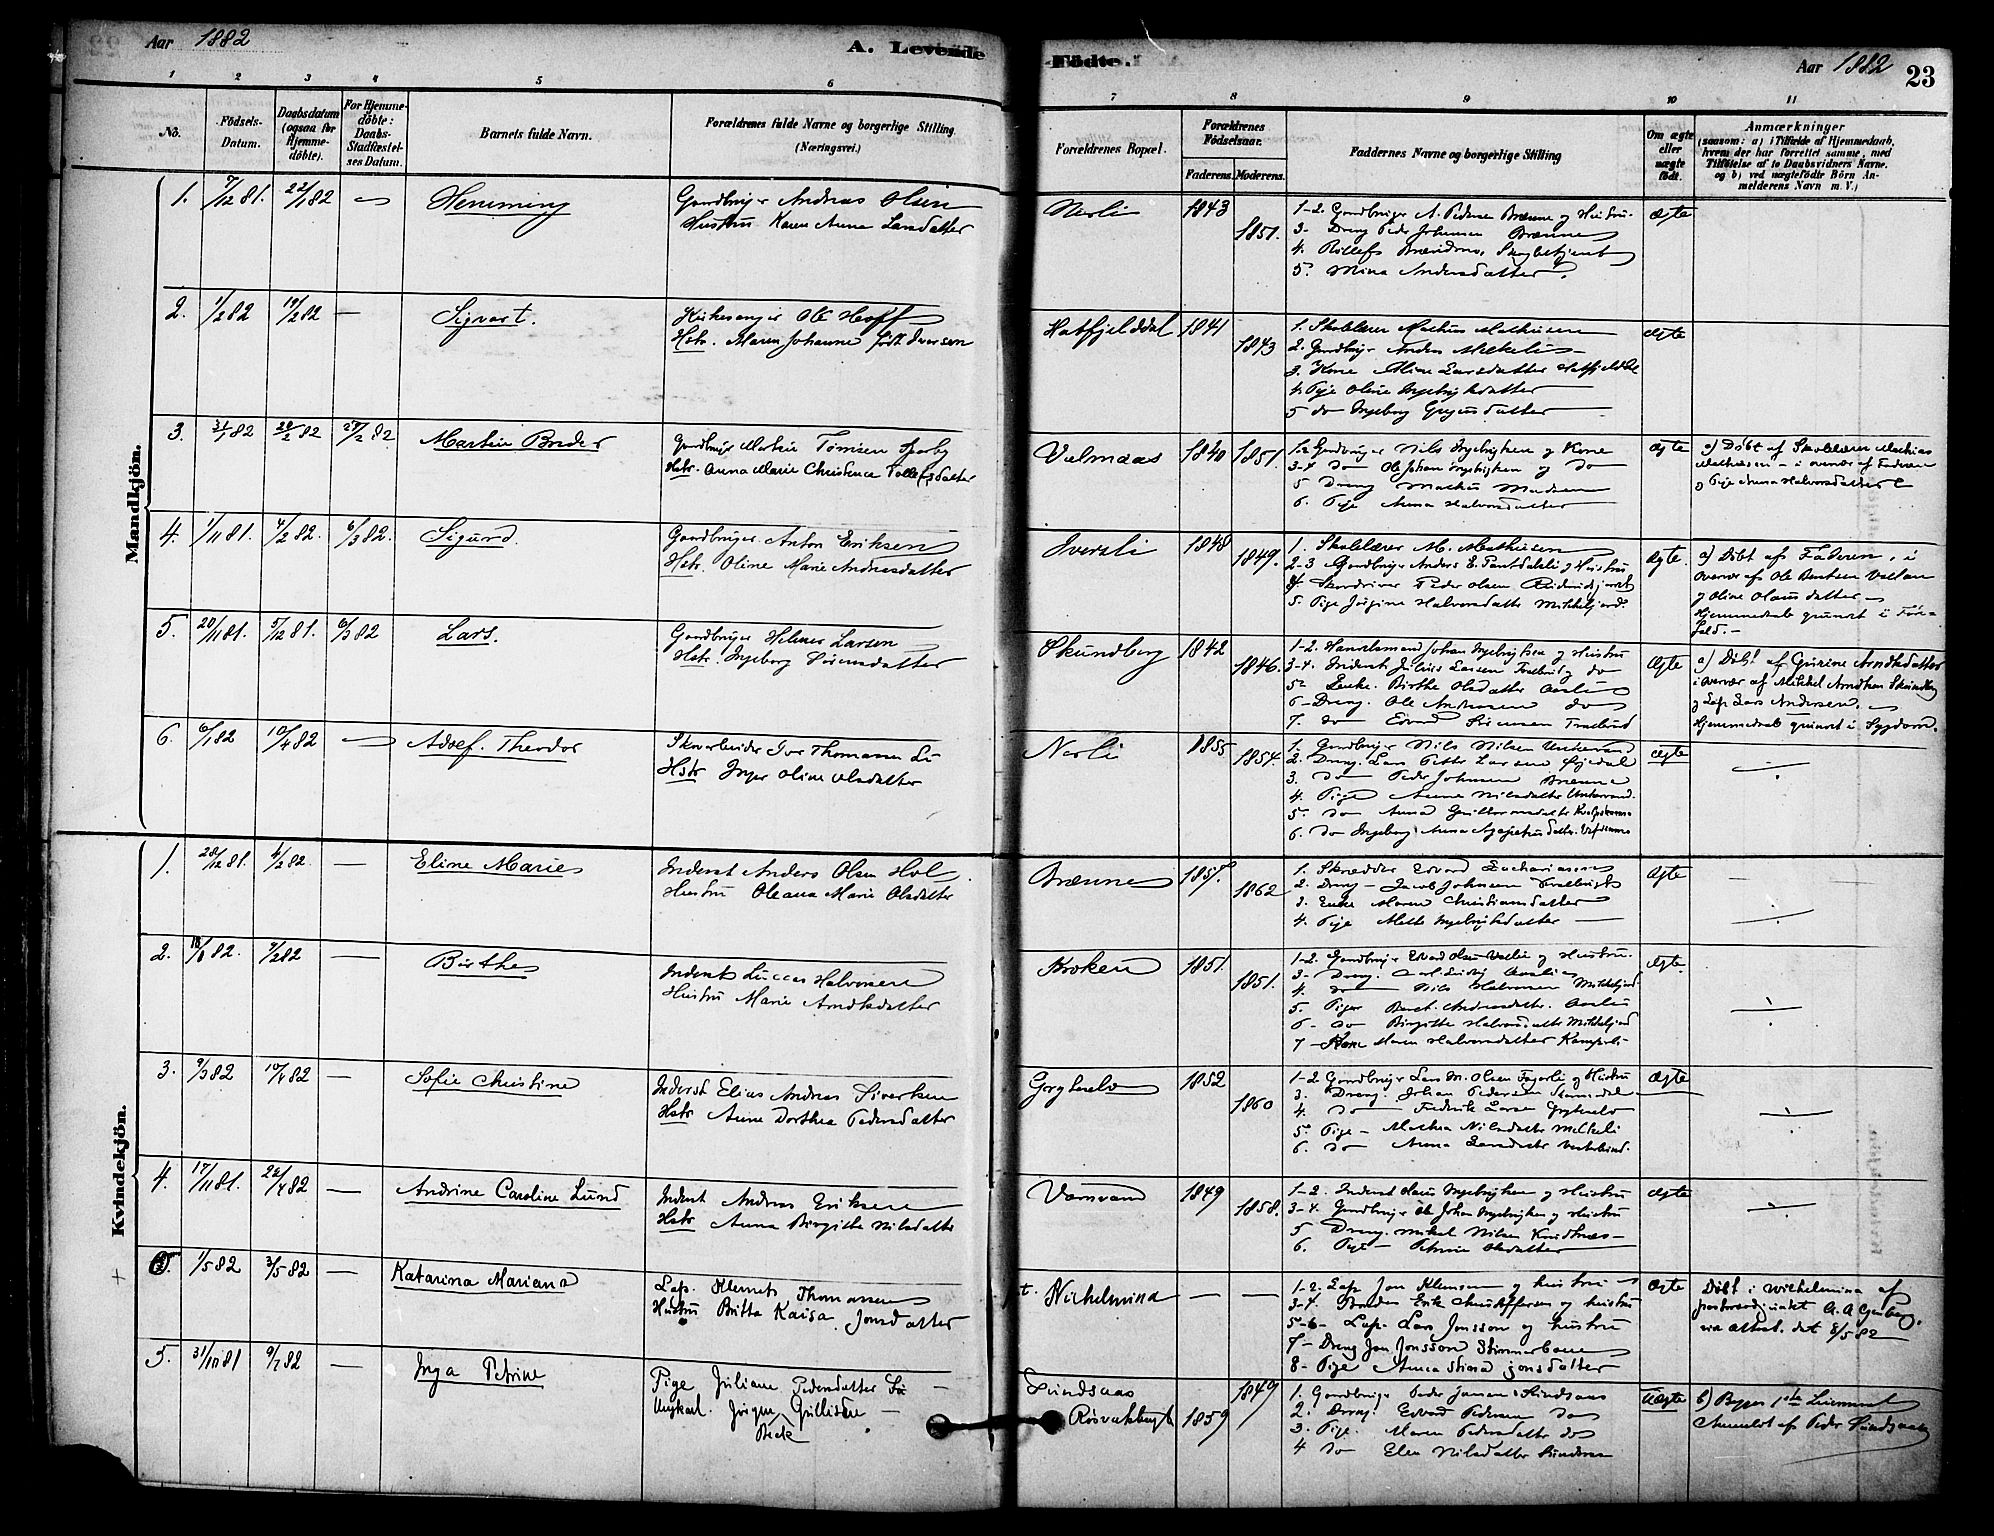 Aar 1882
A. Levende Födte.
Aar 1882 23
1 2 3 4 5 6 7 8 9 10 11
No.
Födsels-Datum.
Daabsdatum (ogsaa for Hjemme-döbte).
For Hjemme-döbte: Daabs-Stadfæstel-ses Datum.
Barnets fulde Navn.
Forældrenes fulde Navne og borgerlige Stilling.
(Næringsvei.)
Forældrenes Bopæl.
Forældrenes Födselsaar.
Faderens. Moderens.
Faddernes Navne og borgerlige Stilling
Om ægte eller uægte födt.
Anmærkninger
(saasom: a) i Tilfælde af Hjemmedaab,
hvem der har forrettet samme, med
Tilföielse af to Daabsvidners Navne.
og b) ved uægtefödte Börn An-
melderens Navn m. V.)
Mandkjön.
1. 7/12 81. 22/1 82 — Hemming
Gaardbruger Andreas Olsen
Hustru Karen Anna Larsdatter
Nerli 1843 1851.
1-2. Gaardbruger A. Pedersen Brænne og Hustru.
3- Dreng Peder Johansen Brænne
5. Mina Andersdatter
Ægte
2. 1/2 82 19/2 82 — Sigvart.
Kirkesanger Ole Hoff
Hstr. Maren Johanne født Iversen
Hatfjelddal 1841 1843
1. Skolelærer Mathias Mathisen
2. Gaardbruger Anders Mikkeli
3. Kone Aline Larsdatter Hatfjelddal
4. Pige Oline Ingebrigtsdatter
5 do Ingeborg Gregusdatter
Ægte
3. 31/1 82 20/2 82 27/2 82 Martin Broder
Gaardbruger Martin Tomsen Sparby
Hstr. Anna Marie Christence Tollefsdatter
Valmaas 1840 1851.
1-2 Gaardbruger Nils Ingebrigtsen og Kone
3-4 do Ole Johan Ingebrigtsen og do
5 Dreng Mathias Madsen
6. Pige Anna Halvorsdatter
Ægte
a) Døbt af Skolelærer Mathias
Mathisen — i overvær af Faderen
og Pige Anna Halvorsdatter
4. 1/11 81. 4/2 82. 6/3 82. Sigurd.
Gaardbruger Anton Eriksen
Hstr. Oline Marie Andreasdatter
Iversli 1848 1849.
1. Skolelærer M. Mathisen
2-3 Gaardbruger Anders E. Pantdalsli og Hustru
5. Pige Jørgine Halvorsdatter Mikkeljord.
Ægte.
a) Døbt af Faderen, i
overvær af Ole Bentsen Vallan
og Oline Olausdatter
Hjemmedaab grundet i Føre-
fald.
5. 20/11 81. 5/12 81. 6/3 82 Lars.
Gaardbruger Helmer Larsen
Hstr. Ingeborg Sørensdatter
Skundberg 1842 1846.
1-2. Handelsmand Johan Ingebrigtsen og Hustru
3-4. Inderst Julius Larsen Tralbud og do
5 Enke. Birthe Olsdatter Aasli
6- Dreng. Ole Andreasen do
7. do Edvard Sørensen Tralbud
Ægte
a) Døbt af Gurine Arndtsdatter
i overvær af Mikkel Arndtsen Skundberg
og Lap Lars Andersen.
Hjemmedaab grundet i Sygdom.
6. 6/1 82 10/4 82 — Adolf. Theodor
Skovarbeider Ivar Thomassen Li
Hstr Inger Oline Olsdatter
Nerli 1855 1854.
1. Gaardbruger Nils Nilsen
2. Dreng. Lars Petter Larsen
3. do Peder Johansen Brænne
4. Pige Anne Nilsdatter
5. do Anna
6. do Ingeborg Anna Agapetusdatter.
Ægte
Kvindekjön.
1. 28/12 81. 4/2 82. — Eline Marie
Inderst Anders Olsen Hol
Hustru Oleana Marie Olsdatter
Brænne 1857. 1862
1. Skrædder Edvard Zachariassen
2. Dreng — Jacob Johnsen
3. Enke Maren Christiansdatter
4. Pige Mette Ingebrigtsdatter
Ægte
2. 18/1 82. 7/2 82 — Birthe
Inderst Luccas Halvorsen
Hustru Marie Arndtsdatter
Kroken 1851. 1851.
1-2. Gaardbruger Edvard Olsen og Hustru.
3- Dreng. Carl Aasli
4. do Nils Halvorsen Mikkeljord
5. Pige Andreasdatter. Aasli
6- do Birgitte Halvorsdatter Mikkeljord
7- Kone Maren Halvorsdatter
Ægte.
3. 9/3 82 10/4 82 — Sofie Christine
Inderst Elias Andreas Sivertsen
Hstr Anne Dorthea Pedersdatter
Grytselv 1852 1860
1-2 Gaardbruger Lars M. Olsen Fagerli og Hustru
3. Dreng. Johan Pedersen
4. do Fredrik Larsen Grytselv
5. Pige — Mathea Nilsdatter Mikkeli
6. do Anna Larsdatter
Ægte
4. 17/11 81. 22/4 82 — Andrine Caroline Lund
Inderst Andreas Eriksen
Hstr Anna Birgitte Nilsdatter
1849 1858.
1-2. Inderst Olaus Ingebrigtsen og Hustru
3-4. Gaardbruger Ole Johan Ingebrigtsen og Hustru
5 Dreng. Mikal Nilsen
6. Pige — Petrine Olsdatter
Ægte
+ 1/5 82 3/5 82 — Katarina Mariana
Lap. Klemet Thomassen
Hustru Britta Kaisa Jonsdatter
t. Vilhelmina — —
1-2. Lap Jon Klemsen og hustru
3-4. Bonden Erik Christoffersen og hustru
5-6- Lap- Lars Jonsson og hustru
7- Dreng Jon Jonsson
8- Pige Anna Stina Jonsdatter
Ægte
Døbt i Wilhelmina af
pastorsadjunkt A. A.
via attest. dat 8/5 82
5. 31/10 81 9/7 82 — Inga Petrine
Pige Juliane Pedersdatter
Ungkarl. Jørgen Gulliksen
Beck
Sundsaas
Røsvatsbugt 1859 1849
1. Gaardbruger Peder Jansen Sundsaas
2. Dreng Edvard Pedersen do
3. Pige. Maren Pedersdatter do
4 do Elen Nilsdatter Sundsaas
Uægte
b) Begges 1ste Leiermaal
Anmeldt af Peder Sundsaas